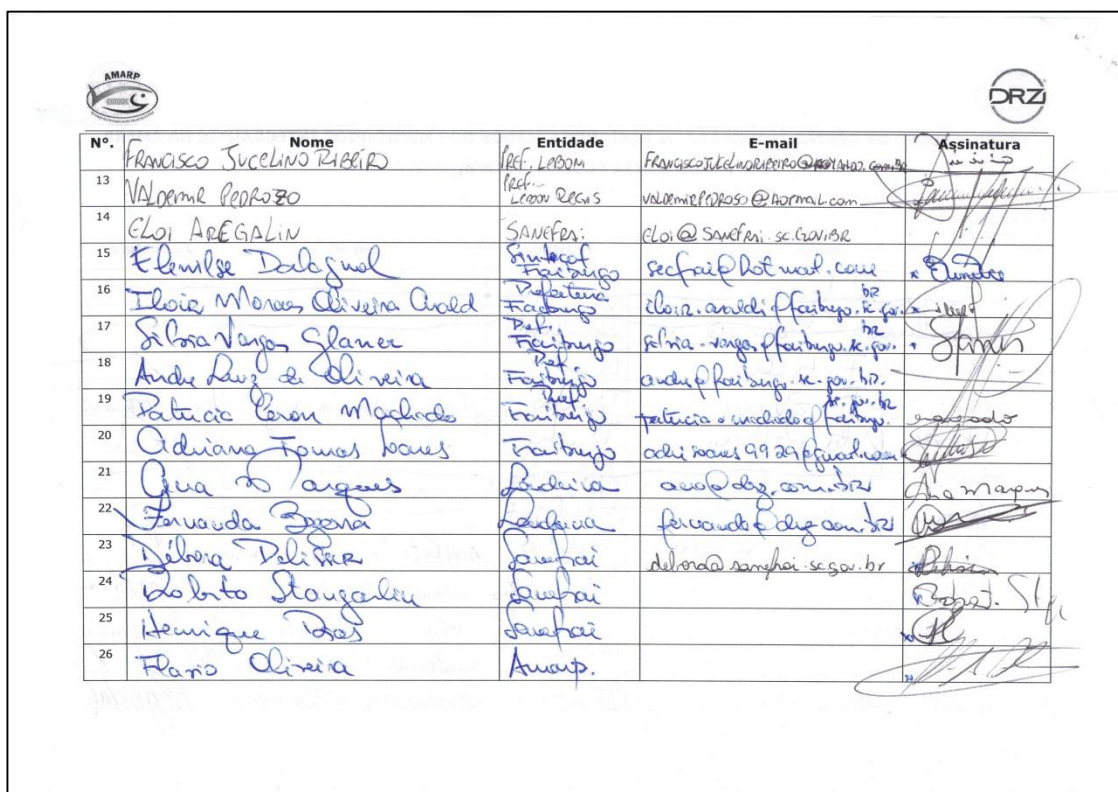 AMARP
DRZ
Nº. Nome Entidade E-mail Assinatura
FRANCISCO JUCELINO RIBEIRO PREF. LEBOM
13 VALDEMIR PEDROZO PREF. LEBON REGIS VALDEMIRPEDROSO@HOTMAIL.COM
14 ELOI AREGALIN SANEFRAI ELOI@SANEFRAI.SC.GOV.BR
15 Elenilse Dalagnol Fraiburgo secfrai@hotmail.com
16 Moraes Oliveira Prefeitura Fraiburgo
17 Silvia Vargas Glaner Pref. Fraiburgo silvia.vargas@fraiburgo.sc.gov.br
18 Andre Luiz de Oliveira Pref. Fraiburgo andre@fraiburgo.sc.gov.br
19 Patricia Ceron Machado Pref. Fraiburgo patricia.machado@fraiburgo.sc.gov.br
20 Adriana Tomas Soares Fraiburgo adrisoares9929@gmail.com
21 Ana Marques Londrina ana@drz.com.br Ana Marques
22 Fernanda Bezerra Londrina fernanda@drz.com.br
23 Débora Sanefrai debora@sanefrai.sc.gov.br
24 Roberto Stangarlin Sanefrai
25 Henrique Sanefrai
26 Flavio Oliveira Amarp.